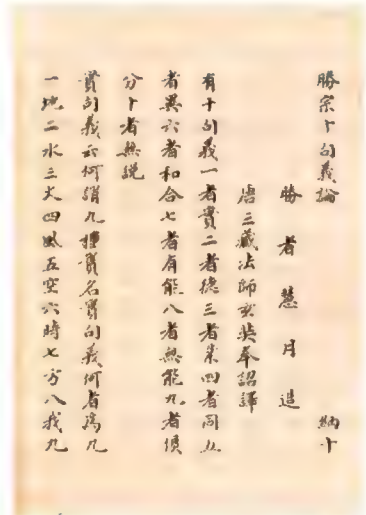 勝宗十句義論 納十
勝者慧月造
唐三藏法師玄奘奉詔譯
有十句義一者實二者德三者業四者同五
者異六者和合七者有能八者無能九者俱
分十者無説
實句義云何謂九種實名實句義何者為九
一地二水三火四風五空六時七方八我九